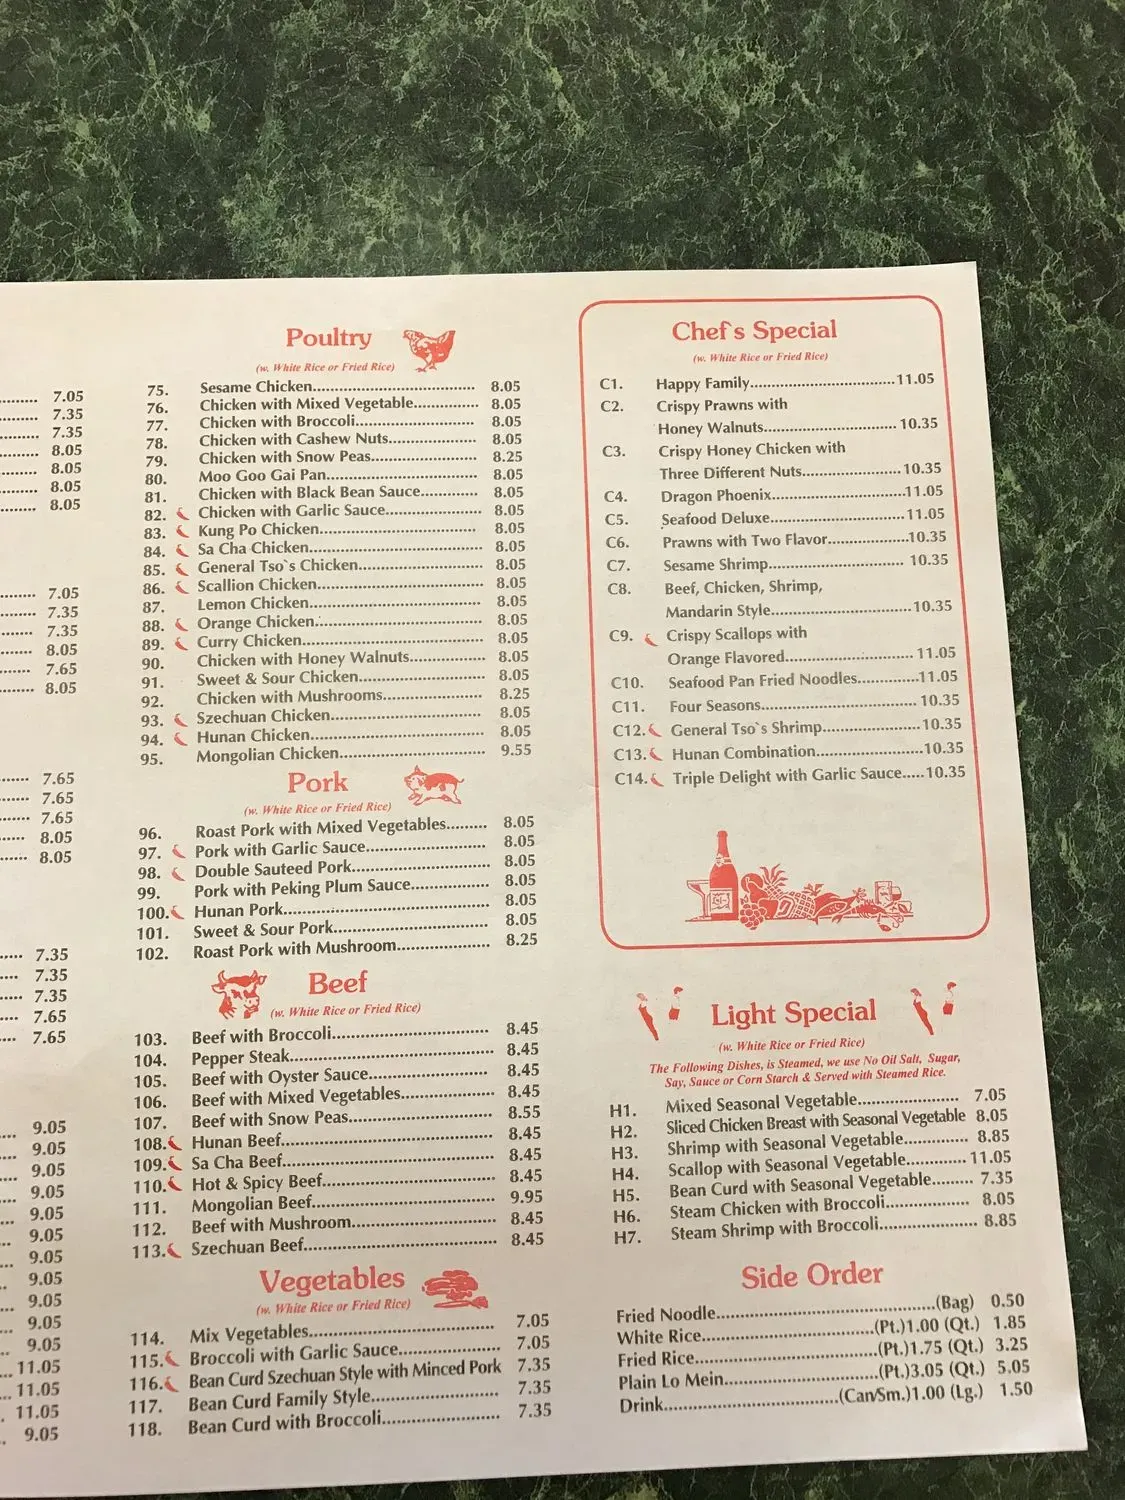 7.05
7.35
7.35
8.05
8.05
8.05
8.05
7.05
7.35
7.35
8.05
7.65
8.05
7.65
7.65
7.65
8.05
8.05
7.35
7.35
7.35
7.65
7.65
9.05
9.05
9.05
9.05
9.05
9.05
9.05
9.05
9.05
9.05
9.05
11.05
11.05
11.05
9.05
Poultry
(w. White Rice or Fried Rice)
75. Sesame Chicken 8.05
76. Chicken with Mixed Vegetable 8.05
77. Chicken with Broccoli 8.05
78. Chicken with Cashew Nuts 8.05
79. Chicken with Snow Peas 8.25
80. Moo Goo Gai Pan 8.05
81. Chicken with Black Bean Sauce 8.05
82. Chicken with Garlic Sauce 8.05
83. Kung Po Chicken 8.05
84. Sa Cha Chicken 8.05
85. General Tso`s Chicken 8.05
86. Scallion Chicken 8.05
87. Lemon Chicken 8.05
88. Orange Chicken 8.05
89. Curry Chicken 8.05
90. Chicken with Honey Walnuts 8.05
91. Sweet & Sour Chicken 8.05
92. Chicken with Mushrooms 8.25
93. Szechuan Chicken 8.05
94. Hunan Chicken 8.05
95. Mongolian Chicken 9.55
Pork
(w. White Rice or Fried Rice)
96. Roast Pork with Mixed Vegetables 8.05
97. Pork with Garlic Sauce 8.05
98. Double Sauteed Pork 8.05
99. Pork with Peking Plum Sauce 8.05
100. Hunan Pork 8.05
101. Sweet & Sour Pork 8.05
102. Roast Pork with Mushroom 8.25
Beef
(w. White Rice or Fried Rice)
103. Beef with Broccoli 8.45
104. Pepper Steak 8.45
105. Beef with Oyster Sauce 8.45
106. Beef with Mixed Vegetables 8.45
107. Beef with Snow Peas 8.55
108. Hunan Beef 8.45
109. Sa Cha Beef 8.45
110. Hot & Spicy Beef 8.45
111. Mongolian Beef 9.95
112. Beef with Mushroom 8.45
113. Szechuan Beef 8.45
Vegetables
(w. White Rice or Fried Rice)
114. Mix Vegetables 7.05
115. Broccoli with Garlic Sauce 7.05
116. Bean Curd Szechuan Style with Minced Pork 7.35
117. Bean Curd Family Style 7.35
118. Bean Curd with Broccoli 7.35
Chef`s Special
(w. White Rice or Fried Rice)
C1. Happy Family 11.05
C2. Crispy Prawns with
Honey Walnuts 10.35
C3. Crispy Honey Chicken with
Three Different Nuts 10.35
C4. Dragon Phoenix 11.05
C5. Seafood Deluxe 11.05
C6. Prawns with Two Flavor 10.35
C7. Sesame Shrimp 10.35
C8. Beef, Chicken, Shrimp,
Mandarin Style 10.35
C9. Crispy Scallops with
Orange Flavored 11.05
C10. Seafood Pan Fried Noodles 11.05
C11. Four Seasons 10.35
C12. General Tso`s Shrimp 10.35
C13. Hunan Combination 10.35
C14. Triple Delight with Garlic Sauce 10.35
Light Special
(w. White Rice or Fried Rice)
The Following Dishes, is Steamed, we use No Oil Salt, Sugar,
Say, Sauce or Corn Starch & Served with Steamed Rice.
H1. Mixed Seasonal Vegetable 7.05
H2. Sliced Chicken Breast with Seasonal Vegetable 8.05
H3. Shrimp with Seasonal Vegetable 8.85
H4. Scallop with Seasonal Vegetable 11.05
H5. Bean Curd with Seasonal Vegetable 7.35
H6. Steam Chicken with Broccoli 8.05
H7. Steam Shrimp with Broccoli 8.85
Side Order
Fried Noodle (Bag) 0.50
White Rice (Pt.)1.00 (Qt.) 1.85
Fried Rice (Pt.)1.75 (Qt.) 3.25
Plain Lo Mein (Pt.)3.05 (Qt.) 5.05
Drink (Can/Sm.)1.00 (Lg.) 1.50